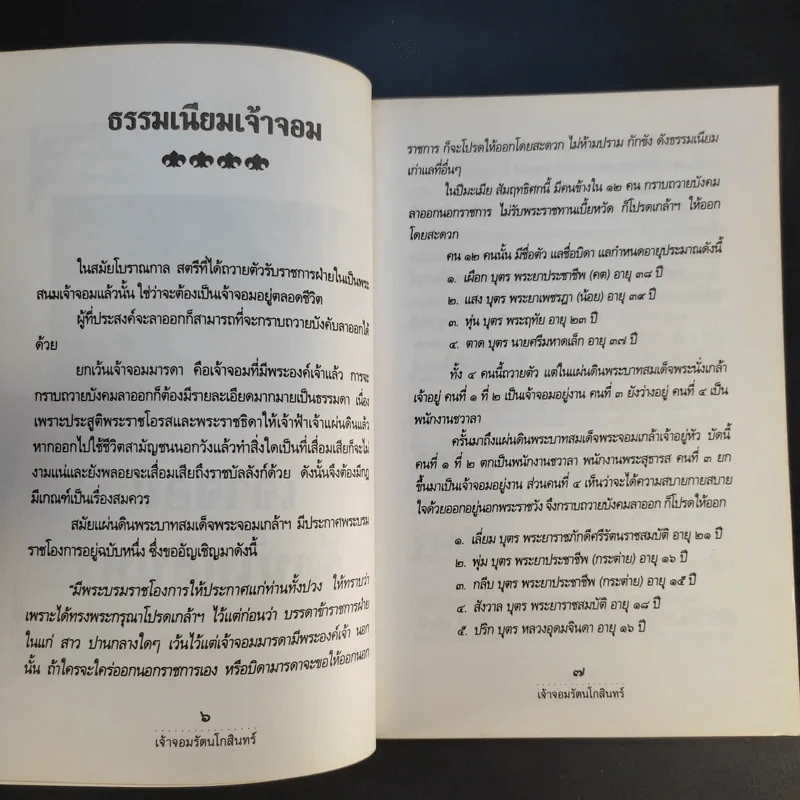 ธรรมเนียมเจ้าจอม
ในสมัยโบราณกาล สตรีที่ได้ถวายตัวรับราชการฝ่ายในเป็นพระ
สนมเจ้าจอมแล้วนั้น ใช่ว่าจะต้องเป็นเจ้าจอมอยู่ตลอดชีวิต
ผู้ที่ประสงค์จะลาออกก็สามารถที่จะกราบถวายบังคับลาออกได้
ด้วย
ยกเว้นเจ้าจอมมารดา คือเจ้าจอมที่มีพระองค์เจ้าแล้ว การจะ
กราบถวายบังคมลาออกก็ต้องมีรายละเอียดมากมายเป็นธรรมดา เนื่อง
เพราะประสูติพระราชโอรสและพระราชธิดาให้เจ้าฟ้าเจ้าแผ่นดินแล้ว
หากออกไปใช้ชีวิตสามัญชนนอกวังแล้วทำสิ่งใดเป็นที่เสื่อมเสียก็จะไม่
งามแน่และยังพลอยจะเสื่อมเสียถึงราชบัลลังก์ด้วย ดังนั้นจึงต้องมีกฎ
มีเกณฑ์เป็นเรื่องสมควร
สมัยแผ่นดินพระบาทสมเด็จพระจอมเกล้าฯ มีประกาศพระบรม
ราชโองการอยู่ฉบับหนึ่ง ซึ่งขออัญเชิญมาดังนี้
"มีพระบรมราชโองการให้ประกาศแก่ท่านทั้งปวง ให้ทราบว่า
เพราะได้ทรงพระกรุณาโปรดเกล้าฯ ไว้แต่ก่อนว่า บรรดาข้าราชการฝ่าย
ในแก่ สาว ปานกลางใดๆ เว้นไว้แต่เจ้าจอมมารดามีพระองค์เจ้า นอก
นั้น ถ้าใครจะใคร่ออกนอกราชการเอง หรือบิดามารดาจะขอให้ออกนอก
๖
เจ้าจอมรัตนโกสินทร์
ราชการ ก็จะโปรดให้ออกโดยสะดวก ไม่ห้ามปราม กักขัง ดังธรรมเนียม
เก่าแลที่อื่นๆ
ในปีมะเมีย สัมฤทธิศกนี้ มีคนข้างใน ๑๒ คน กราบถวายบังคม
ลาออกนอกราชการ ไม่รับพระราชทานเบี้ยหวัด ก็โปรดเกล้าฯ ให้ออก
โดยสะดวก
คน ๑๒ คนนั้น มีชื่อตัว แลชื่อบิดา แลกำหนดอายุประมาณดังนี้
๑. เผือก บุตร พระยาประชาชีพ (คต) อายุ ๓๘ ปี
๒. แสง บุตร พระยาเพชรฎา (น้อย) อายุ ๓๙ ปี
๓. หุ่น บุตร พระฤทัย อายุ ๒๓ ปี
๔. ตาด บุตร นายศรีมหาดเล็ก อายุ ๓๗ ปี
ทั้ง ๔ คนนี้ถวายตัว แต่ในแผ่นดินพระบาทสมเด็จพระนั่งเกล้า
เจ้าอยู่ คนที่ ๑ ที่ ๒ เป็นเจ้าจอมอยู่งาน คนที่ ๓ ยังว่างอยู่ คนที่ ๔ เป็น
พนักงานชวาลา
ครั้นมาถึงแผ่นดินพระบาทสมเด็จพระจอมเกล้าเจ้าอยู่หัว บัดนี้
คนที่ ๑ ที่ ๒ ตกเป็นพนักงานชวาลา พนักงานพระสุธารส คนที่ ๓ ยก
ขึ้นมาเป็นเจ้าจอมอยู่งาน ส่วนคนที่ ๔ เห็นว่าจะได้ความสบายกายสบาย
ใจด้วยออกอยู่นอกพระราชวัง จึงกราบถวายบังคมลาออก ก็โปรดให้ออก
๑. เลี่ยม บุตร พระยาราชภักดีศรีรัตนราชสมบัติ อายุ ๒๑ ปี
๒. พุ่ม บุตร พระยาประชาชีพ (กระต่าย) อายุ ๑๖ ปี
๓. กลีบ บุตร พระยาประชาชีพ (กระต่าย) อายุ ๑๕ ปี
๔. สังวาล บุตร พระยาราชสมบัติ อายุ ๑๘ ปี
๕. ปริก บุตร หลวงอุดมจินดา อายุ ๑๖ ปี
๗
เจ้าจอมรัตนโกสินทร์